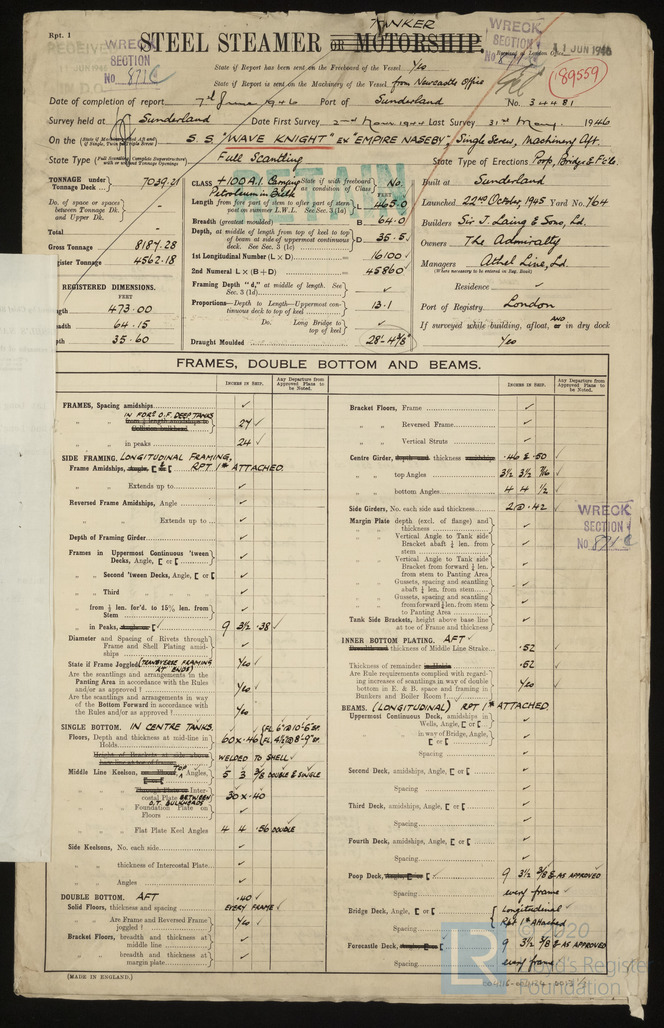 Rpt. 1
TANKER
STEEL STEAMER OR MOTORSHIP.
RECEIVED
JUN 1946
IN D.O.
WRECK
SECTION
No 871C
WRECK
SECTION
No 871C
Received in London Office
11 JUN 1946
89559
State if Report has been sent on the Freeboard of the Vessel Yes
State if Report is sent on the Machinery of the Vessel from Newcastle Office
Date of completion of report 7th June 1946 Port of Sunderland No. 34481
Survey held at Sunderland Date First Survey Last Survey 31st May, 1946
On the S.S. "WAVE KNIGHT" ex "EMPIRE NASEBY", Single Screw, Machinery Aft.
State Type Full Scantling State Type of Erections Poop, Bridge & F'cle.
TONNAGE under Tonnage Deck ... 7039.21
Do. of space or spaces between Tonnage Dk. and Upper Dk. -
Total -
Gross Tonnage 8187.28
Register Tonnage 4562.18
REGISTERED DIMENSIONS.
FEET
Length 473.00
Breadth 64.15
Depth 35.60
CLASS +100A.1. Carrying Petroleum in Bulk
State if with freeboard as condition of Class No
RETAIN
FEET
Length from fore part of stem to after part of stern post on summer L.W.L. See Sec. 3 (1a) L 465.0
Breadth (greatest moulded) B 64.0
Depth, at middle of length from top of keel to top of beam at side of uppermost continuous deck. See Sec. 3 (1c) D 35.5
1st Longitudinal Number (L × D) = 16100
2nd Numeral L × (B + D) = 45860
Framing Depth "d," at middle of length. See Sec. 3 (1d)
Proportions—Depth to Length—Uppermost continuous deck to top of keel 13.1
Do. Long Bridge to top of keel
Draught Moulded
Built at Sunderland
Launched 22nd October 1945 Yard No. 764
Builders Sir J. Laing & Sons, Ld.
Owners The Admiralty
Managers Athel Line, Ld.
(Where necessary to be entered in Reg. Book)
Residence
Port of Registry London
If surveyed while building, afloat, AND or in dry dock
Yes
FRAMES, DOUBLE BOTTOM AND BEAMS.
INCHES IN SHIP. Any Departure from Approved Plans to be Noted.
FRAMES, Spacing amidships
IN FORE O.F. DEEP TANKS
" " from ⅕ length amidships to Collision bulkhead 27
" " in peaks 24
SIDE FRAMING, LONGITUDINAL FRAMING,
Frame Amidships, Angle, [ or [ RPT 1* ATTACHED.
" " Extends up to
Reversed Frame Amidships, Angle
" " " Extends up to
Depth of Framing Girder
Frames in Uppermost Continuous 'tween Decks, Angle, [ or [
" " Second 'tween Decks, Angle, [ or [
" " Third " " " "
" " from ⅕ len. for'd. to 15% len. from Stem
" " in Peaks, Angle or [ 9 3½ .38
Diameter and Spacing of Rivets through Frame and Shell Plating amidships
State if Frame Joggled (TRANSVERSE FRAMING AT ENDS) Yes
Are the scantlings and arrangements in the Panting Area in accordance with the Rules and/or as approved? Yes
Are the scantlings and arrangements in way of the Bottom Forward in accordance with the Rules and/or as approved? Yes
SINGLE BOTTOM. IN CENTRE TANKS.
Floors, Depth and thickness at mid-line in Holds 60 x .46
Height of Brackets at side above base line at toe of frame WELDED TO SHELL
Middle Line Keelson, TOP Angles, 5 3 ⅜ DOUBLE & SINGLE
Through Plate or Intercostal Plate BETWEEN O.T. BULKHEADS 30 x .40
Foundation Plate on Floors
Flat Plate Keel Angles 4 4 .56 DOUBLE
Side Keelsons, No. each side
" " thickness of Intercostal Plate
" " Angles
DOUBLE BOTTOM. AFT
Solid Floors, thickness and spacing .40 EVERY FRAME
" " Are Frame and Reversed Frame joggled? Yes
Bracket Floors, breadth and thickness at middle line
" " breadth and thickness at margin plate
INCHES IN SHIP. Any Departure from Approved Plans to be Noted.
Bracket Floors, Frame
" " Reversed Frame
" " Vertical Struts
Centre Girder, depth and thickness amidships .46 & .50
" " top Angles 3½ 3½ 7/16
" " bottom Angles 4 4 ½
Side Girders, No. each side and thickness 2 @ .42
Margin Plate depth (excl. of flange) and thickness
" " Vertical Angle to Tank side Bracket abaft ¼ len. from stem
" " Vertical Angle to Tank side Bracket from forward ¼ len. from stem to Panting Area
" " Gussets, spacing and scantling abaft ¼ len. from stem
" " Gussets, spacing and scantling from forward ¼ len. from stem to Panting Area
Tank Side Brackets, height above base line at toe of Frame and thickness
WRECK
SECTION
No 871C
INNER BOTTOM PLATING. AFT
Breadth and thickness of Middle Line Strake .52
Thickness of remainder in Holds .52
Are Rule requirements complied with regarding increases of scantlings in way of double bottom in E. & B. space and framing in Bunkers and Boiler Room? Yes
BEAMS. (LONGITUDINAL) RPT 1* ATTACHED.
Uppermost Continuous Deck, amidships in Wells, Angle, [ or [
" " in way of Bridge, Angle, [ or [
Spacing
Second Deck, amidships, Angle, [ or [
Spacing
Third Deck, amidships, Angle, [ or [
Spacing
Fourth Deck, amidships, Angle, [ or [
Spacing
Poop Deck, Angle, [ or [ 9 3½ ⅜ & AS APPROVED
Spacing every frame
Bridge Deck, Angle, [ or [ Longitudinal
Spacing Rpt 1* Attached
Forecastle Deck, Angle, [ or [ 9 3½ ⅜ & AS APPROVED
Spacing every frame
(MADE IN ENGLAND.)
LR
© 2020
Lloyd's Register
Foundation